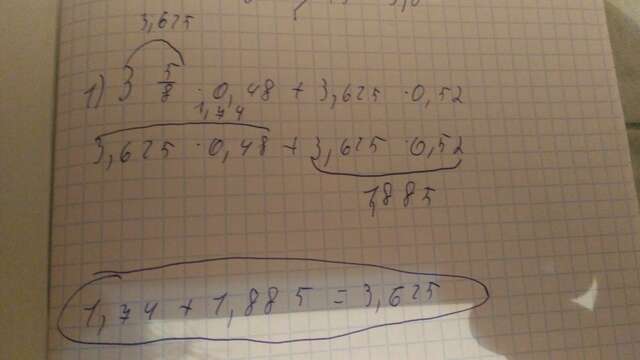 3,625
1) 3 5/8 · 0,48 + 3,625 · 0,52
1,74
3,625 · 0,48 + 3,625 · 0,52
1,885
1,74 + 1,885 = 3,625